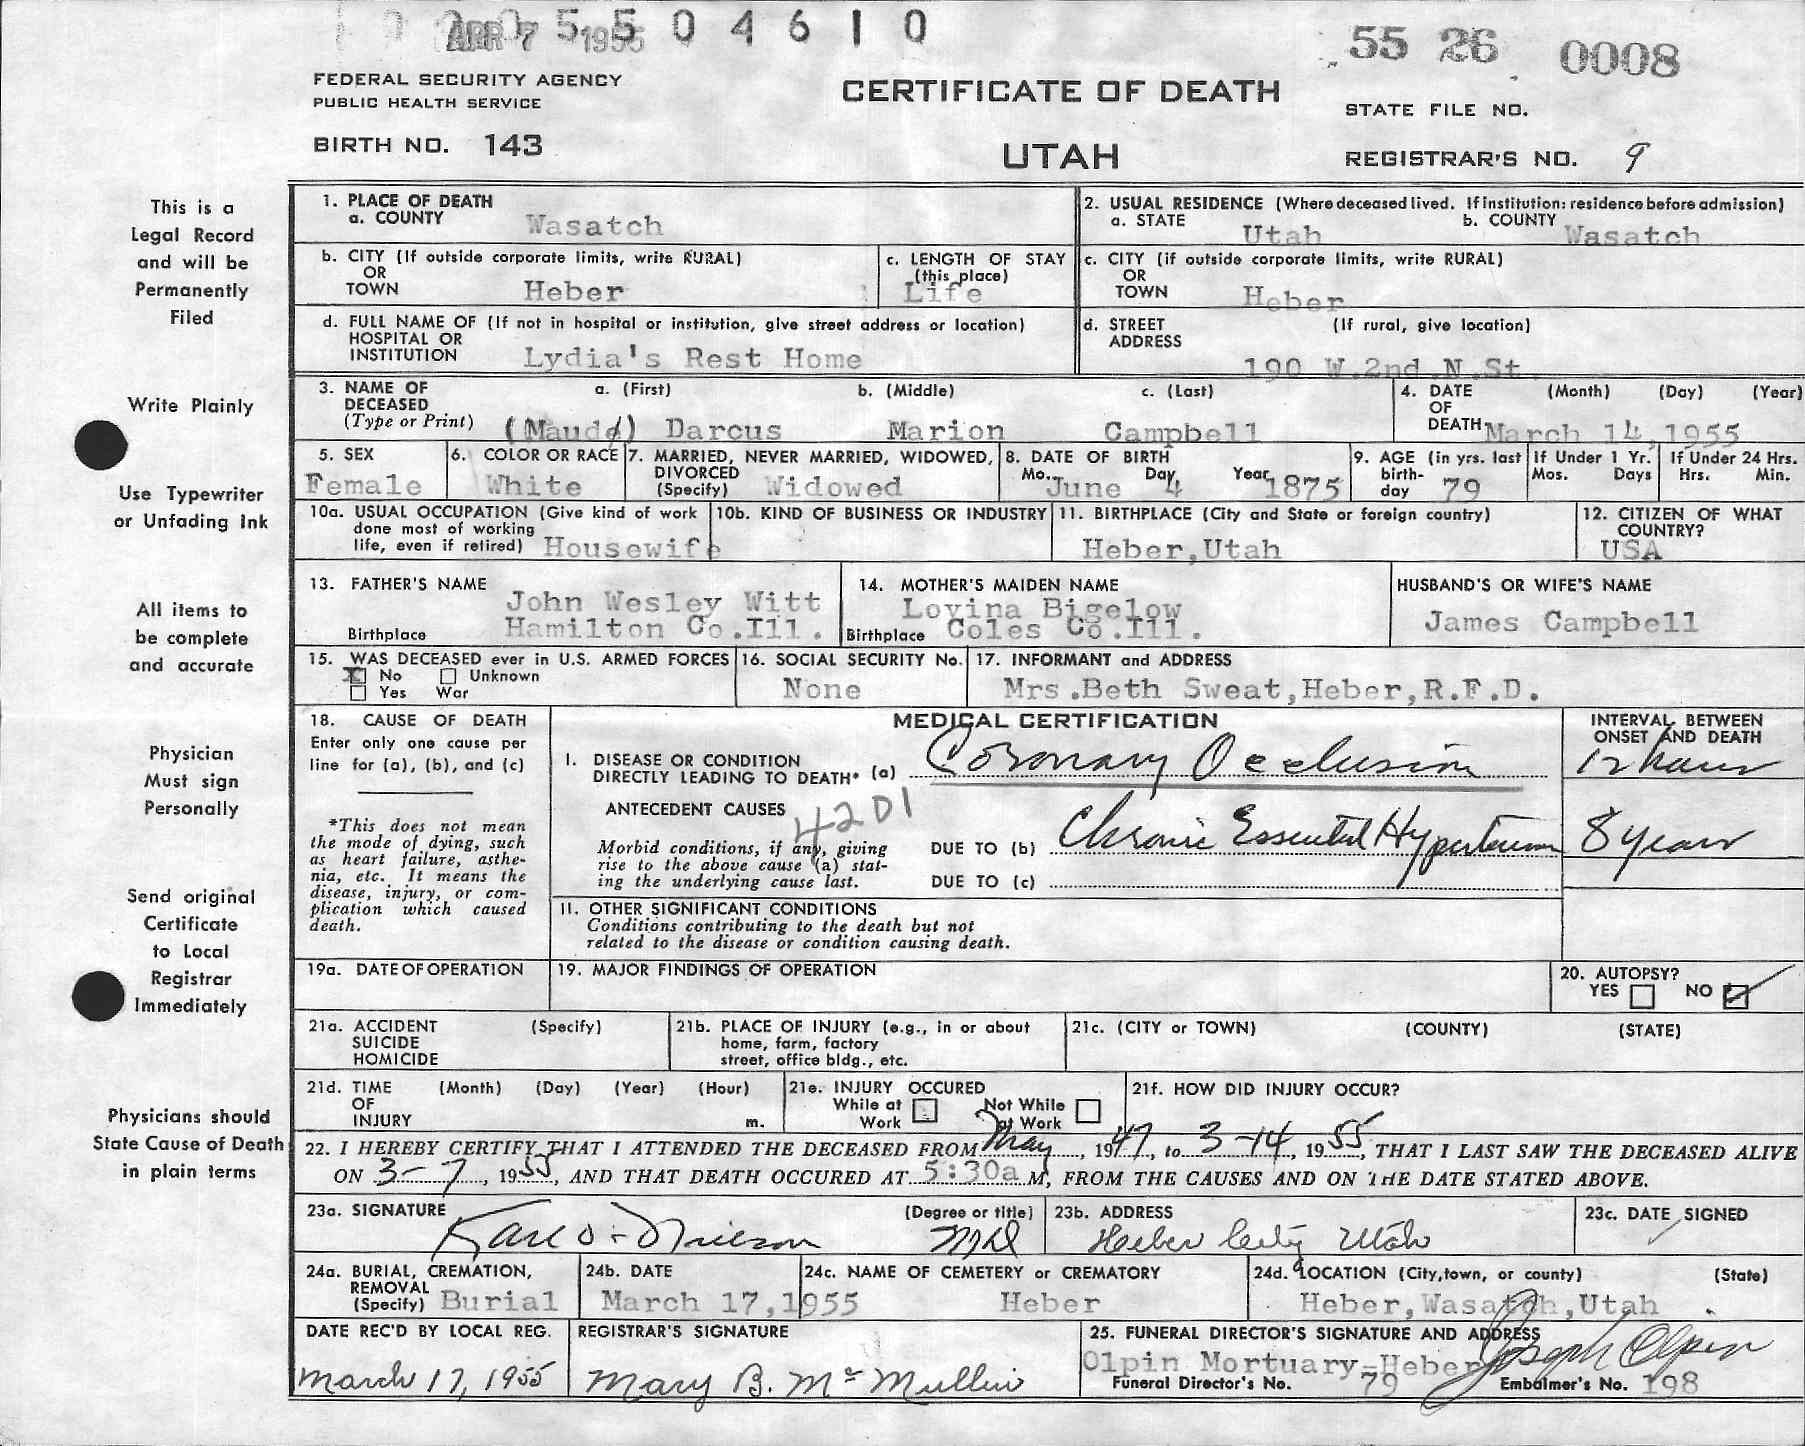 APR 7 1955
5 5 0 4 6 1 0
55 26 0008
FEDERAL SECURITY AGENCY
PUBLIC HEALTH SERVICE
CERTIFICATE OF DEATH
STATE FILE NO.
BIRTH NO. 143
UTAH
REGISTRAR'S NO. 9
This is a
Legal Record
and will be
Permanently
Filed
Write Plainly
Use Typewriter
or Unfading Ink
All items to
be complete
and accurate
Physician
Must sign
Personally
Send original
Certificate
to Local
Registrar
Immediately
Physicians should
State Cause of Death
in plain terms
1. PLACE OF DEATH
a. COUNTY Wasatch
2. USUAL RESIDENCE (Where deceased lived. If institution: residence before admission)
a. STATE Utah b. COUNTY Wasatch
b. CITY (If outside corporate limits, write RURAL)
OR
TOWN Heber
c. LENGTH OF STAY
(this place)
Life
c. CITY (if outside corporate limits, write RURAL)
OR
TOWN Heber
d. FULL NAME OF (If not in hospital or institution, give street address or location)
HOSPITAL OR
INSTITUTION Lydia's Rest Home
d. STREET (If rural, give location)
ADDRESS
190 W.2nd.N.St.
3. NAME OF a. (First) b. (Middle) c. (Last)
DECEASED
(Type or Print) (Maude) Darcus Marion Campbell
4. DATE (Month) (Day) (Year)
OF
DEATH March 14, 1955
5. SEX
Female
6. COLOR OR RACE
White
7. MARRIED, NEVER MARRIED, WIDOWED,
DIVORCED
(Specify) Widowed
8. DATE OF BIRTH
Mo. June Day 4 Year 1875
9. AGE (in yrs. last
birth-
day 79
If Under 1 Yr.
Mos. Days
If Under 24 Hrs.
Hrs. Min.
10a. USUAL OCCUPATION (Give kind of work
done most of working
life, even if retired) Housewife
10b. KIND OF BUSINESS OR INDUSTRY
11. BIRTHPLACE (City and State or foreign country)
Heber, Utah
12. CITIZEN OF WHAT
COUNTRY?
USA
13. FATHER'S NAME
John Wesley Witt
Birthplace Hamilton Co.Ill.
14. MOTHER'S MAIDEN NAME
Lovina Bigelow
Birthplace Coles Co.Ill.
HUSBAND'S OR WIFE'S NAME
James Campbell
15. WAS DECEASED ever in U.S. ARMED FORCES
X No Unknown
Yes War
16. SOCIAL SECURITY No.
None
17. INFORMANT and ADDRESS
Mrs.Beth Sweat, Heber, R.F.D.
18. CAUSE OF DEATH
Enter only one cause per
line for (a), (b), and (c)
*This does not mean
the mode of dying, such
as heart failure, asthe-
nia, etc. It means the
disease, injury, or com-
plication which caused
death.
MEDICAL CERTIFICATION
INTERVAL BETWEEN
ONSET AND DEATH
I. DISEASE OR CONDITION
DIRECTLY LEADING TO DEATH* (a) Coronary Occlusion 12 hours
ANTECEDENT CAUSES 4201
Morbid conditions, if any, giving
rise to the above cause (a) stat-
ing the underlying cause last.
DUE TO (b) Chronic Essential Hypertension 8 years
DUE TO (c)
II. OTHER SIGNIFICANT CONDITIONS
Conditions contributing to the death but not
related to the disease or condition causing death.
19a. DATE OF OPERATION
19. MAJOR FINDINGS OF OPERATION
20. AUTOPSY?
YES NO
21a. ACCIDENT (Specify)
SUICIDE
HOMICIDE
21b. PLACE OF INJURY (e.g., in or about
home, farm, factory
street, office bldg., etc.
21c. (CITY or TOWN) (COUNTY) (STATE)
21d. TIME (Month) (Day) (Year) (Hour)
OF
INJURY m.
21e. INJURY OCCURED
While at Work
Not While at Work
21f. HOW DID INJURY OCCUR?
22. I HEREBY CERTIFY THAT I ATTENDED THE DECEASED FROM May, 1947, to 3-14, 1955, THAT I LAST SAW THE DECEASED ALIVE
ON 3-7, 1955, AND THAT DEATH OCCURED AT 5:30a M, FROM THE CAUSES AND ON THE DATE STATED ABOVE.
23a. SIGNATURE (Degree or title)
Karl O. Nielson MD
23b. ADDRESS
Heber City Utah
23c. DATE SIGNED
24a. BURIAL, CREMATION,
REMOVAL
(Specify) Burial
24b. DATE
March 17, 1955
24c. NAME OF CEMETERY or CREMATORY
Heber
24d. LOCATION (City, town, or county) (State)
Heber, Wasatch, Utah
DATE REC'D BY LOCAL REG.
March 17, 1955
REGISTRAR'S SIGNATURE
Mary B. McMullin
25. FUNERAL DIRECTOR'S SIGNATURE AND ADDRESS
Olpin Mortuary-Heber Joseph Olpin
Funeral Director's No. 79 Embalmer's No. 198